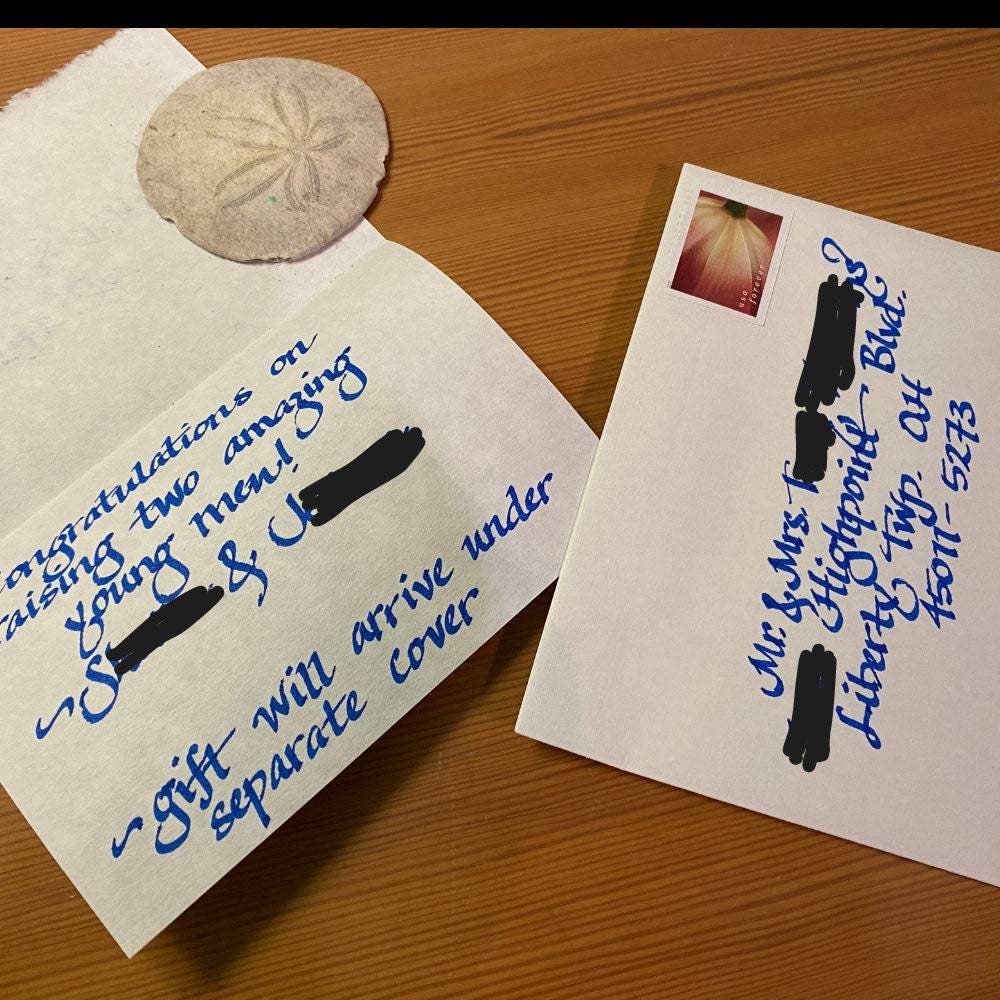 Congratulations on
raising two amazing
young men!
~S & J
~gift will arrive under
separate cover
usa
forever
Mr. & Mrs. T s?
Highpoint Blvd.
Liberty Twp. OH
45011-5273